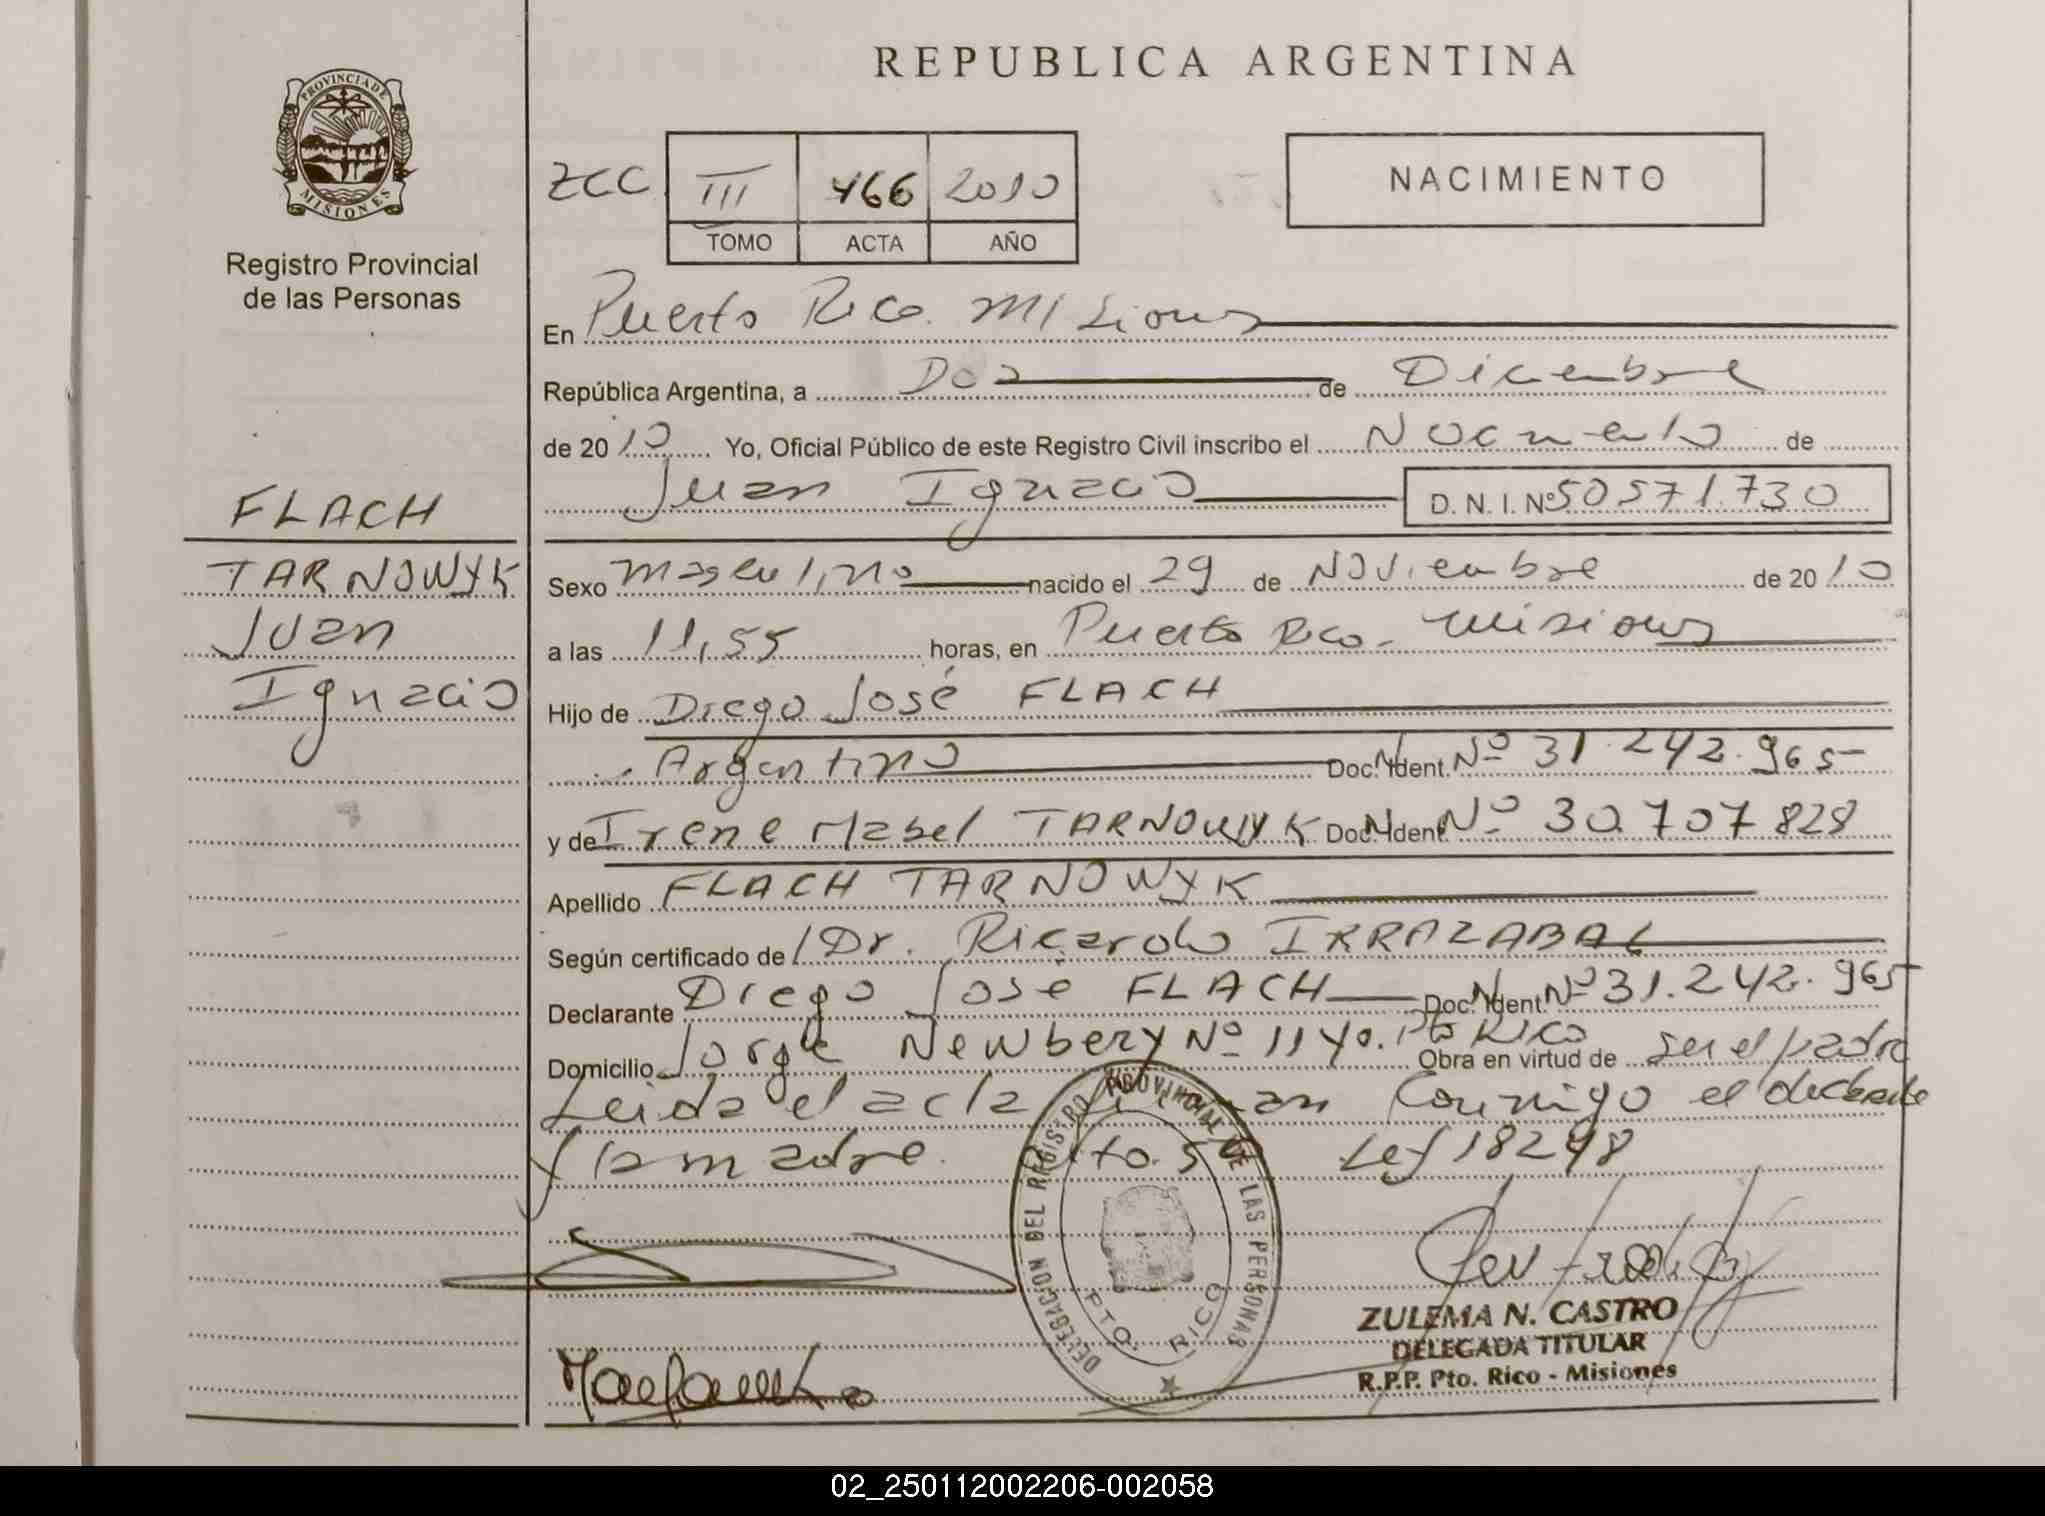 PROVINCIA DE
MISIONES
Registro Provincial
de las Personas
FLACH
TARNOWYK
Juan
Ignacio
REPUBLICA ARGENTINA
ZCC III 466 2010
TOMO ACTA AÑO
NACIMIENTO
En Puerto Rico. Misiones
República Argentina, a Dos de Diciembre
de 2010 Yo, Oficial Público de este Registro Civil inscribo el Nacimiento de
Juan Ignacio D. N. I. Nº 50571.730
Sexo masculino nacido el 29 de Noviembre de 2010
a las 11,55 horas, en Puerto Rico. Misiones
Hijo de Diego José FLACH
Argentino Doc. Ident. Nº 31.242.965
y de Irene Mabel TARNOWYK Doc. Ident. Nº 30.707 828
Apellido FLACH TARNOWYK
Según certificado de Dr. Ricardo IRRAZABAL
Declarante Diego José FLACH Doc. Ident. Nº 31.242.965
Domicilio Jorge Newbery Nº 1140. Pto Rico Obra en virtud de ser el padre
Leida el acta Conmigo el declarante
y la madre. Ley 18248
DELEGACION DEL REGISTRO PROVINCIAL DE LAS PERSONAS
PTO. RICO
ZULEMA N. CASTRO
DELEGADA TITULAR
R.P.P. Pto. Rico - Misiones
02_250112002206-002058